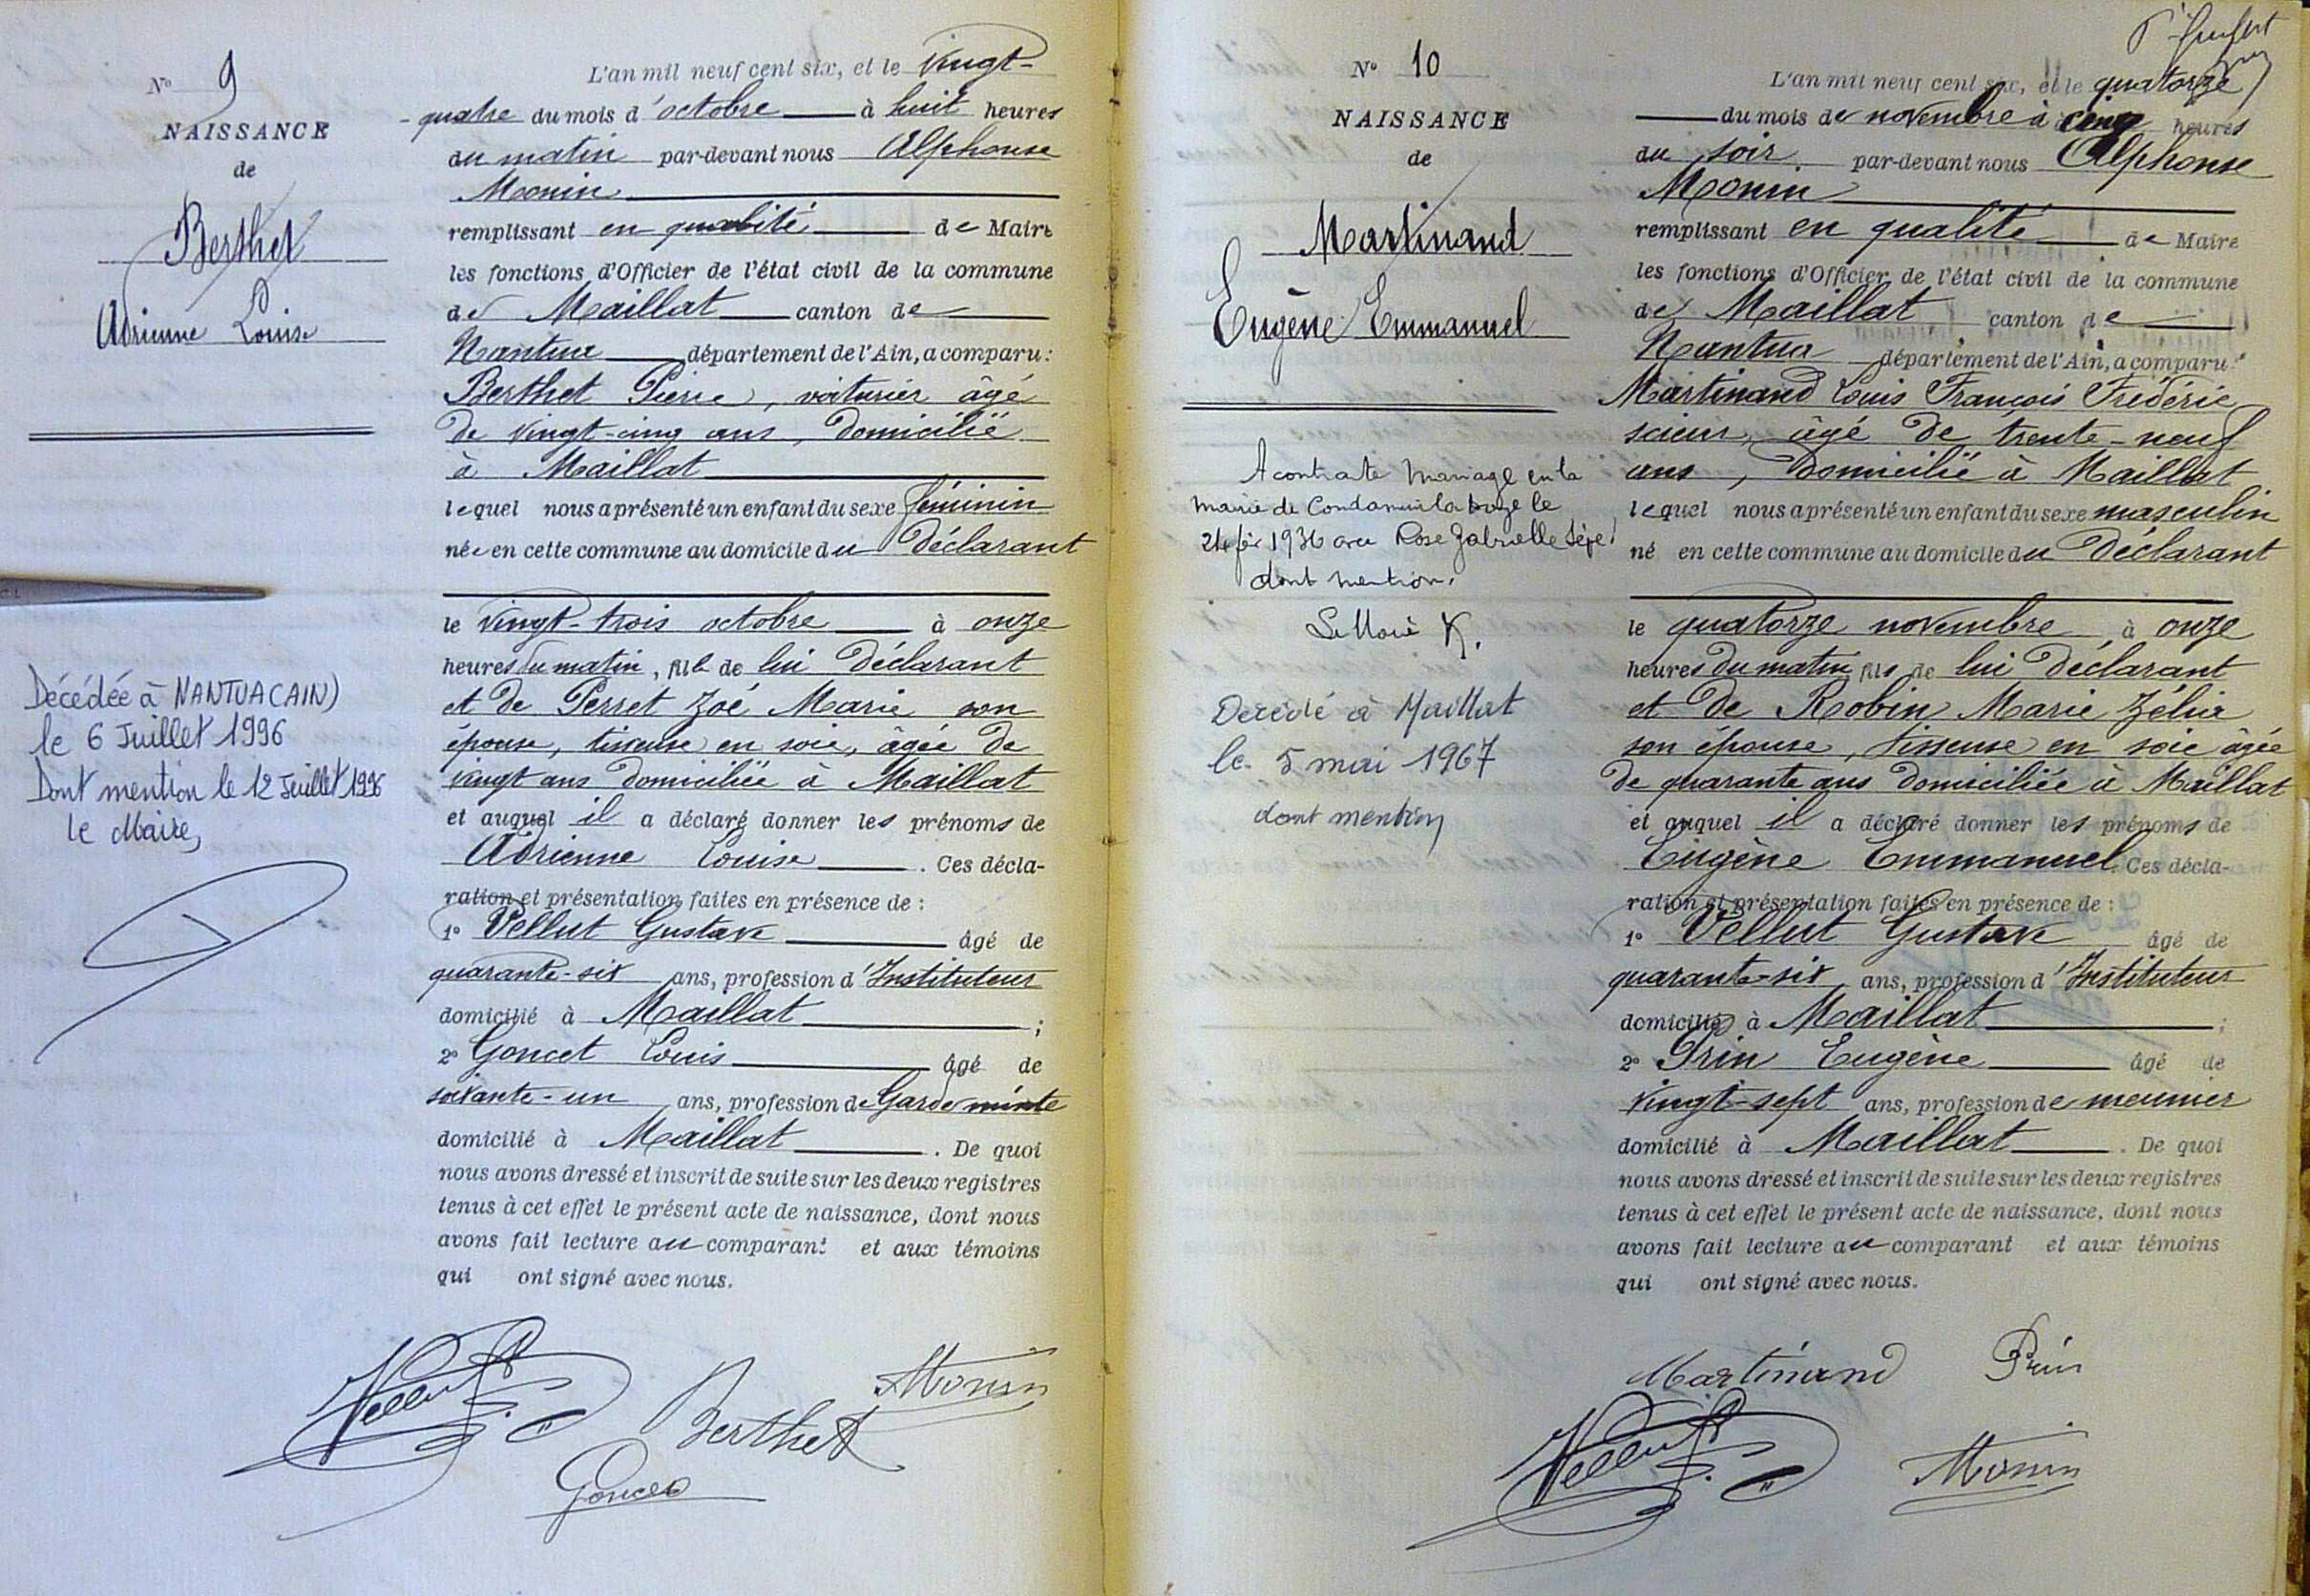 N° 9
NAISSANCE
de
Berthet
Adrienne Louise
Décédée à NANTUA (AIN)
le 6 Juillet 1996
Dont mention le 12 Juillet 1996
le Maire,
L'an mil neuf cent six, et le vingt-
-quatre du mois d'octobre à huit heures
du matin par-devant nous Alphonse
Monin
remplissant en qualité de Maire
les fonctions d'Officier de l'état civil de la commune
de Maillat canton de
Nantua département de l'Ain, a comparu :
Berthet Pierre, voiturier âgé
de vingt-cinq ans, domicilié
à Maillat
lequel nous a présenté un enfant du sexe féminin
née en cette commune au domicile du déclarant
le vingt-trois octobre à onze
heures du matin, fille de lui déclarant
et de Perret Zoé Marie son
épouse, tisseuse en soie, âgée de
vingt ans domiciliée à Maillat
et auquel il a déclaré donner les prénoms de
Adrienne Louise. Ces décla-
ration et présentation faites en présence de :
1° Vellut Gustave âgé de
quarante-six ans, profession d'Instituteur
domicilié à Maillat ;
2° Goncet Louis âgé de
soixante-un ans, profession de Garde
domicilié à Maillat. De quoi
nous avons dressé et inscrit de suite sur les deux registres
tenus à cet effet le présent acte de naissance, dont nous
avons fait lecture au comparant et aux témoins
qui ont signé avec nous.
Vellut Berthet Monin
Goncet
N° 10
NAISSANCE
de
Martinand
Eugène Emmanuel
A contracté mariage en la
mairie de Condamine la
1936 avec Rose Gabrielle
dont mention.
Le Maire
Décédé à Maillat
le 5 mai 1967
dont mention
L'an mil neuf cent six, et le quatorze
du mois de novembre à cinq heures
du soir par-devant nous Alphonse
Monin
remplissant en qualité de Maire
les fonctions d'Officier de l'état civil de la commune
de Maillat canton de
Nantua département de l'Ain, a comparu :
Martinand Louis François Frédéric
scieur, âgé de trente-neuf
ans, domicilié à Maillat
lequel nous a présenté un enfant du sexe masculin
né en cette commune au domicile du déclarant
le quatorze novembre à onze
heures du matin fils de lui déclarant
et de Robin Marie Zélia
son épouse, tisseuse en soie âgée
de quarante ans domiciliée à Maillat
et auquel il a déclaré donner les prénoms de
Eugène Emmanuel. Ces décla-
ration et présentation faites en présence de :
1° Vellut Gustave âgé de
quarante-six ans, profession d'Instituteur
domicilié à Maillat ;
2° Prin Eugène âgé de
vingt-sept ans, profession de meunier
domicilié à Maillat. De quoi
nous avons dressé et inscrit de suite sur les deux registres
tenus à cet effet le présent acte de naissance, dont nous
avons fait lecture au comparant et aux témoins
qui ont signé avec nous.
Martinand Prin
Vellut Monin